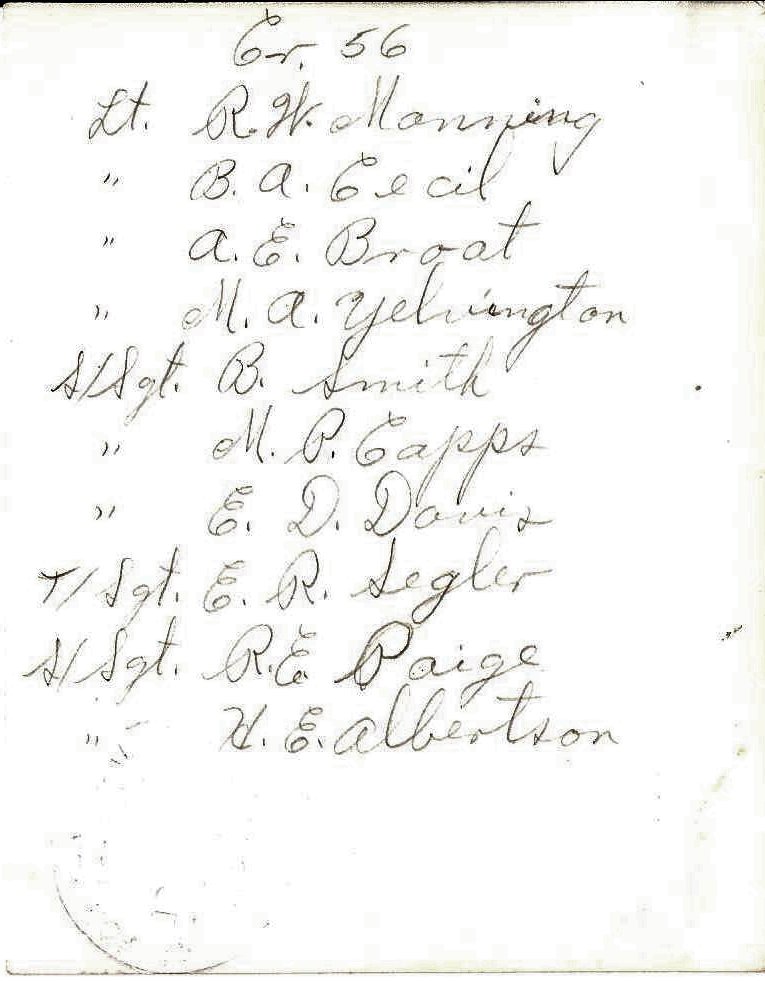 Cr. 56
Lt. R. W. Manning
" B. A. Cecil
" A. E. Broat
" M. A. Yelvington
S/Sgt. B. Smith
" M. P. Capps
" E. D. Davis
T/Sgt. E. R. Segler
S/Sgt. R. E. Paige
" H. E. Albertson